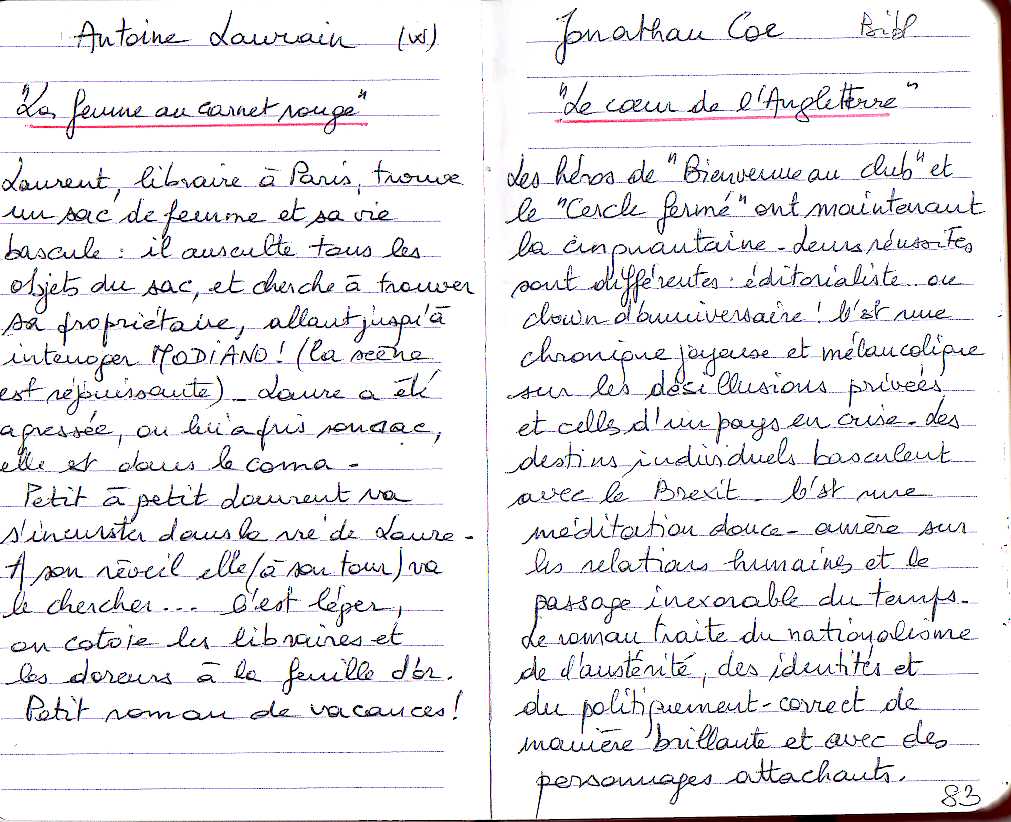 Antoine Laurain (vs)
"La femme au carnet rouge"
Laurent, libraire à Paris, trouve
un sac de femme et sa vie
bascule : il ausculte tous les
objets du sac, et cherche à trouver
sa propriétaire, allant jusqu'à
interroger MODIANO ! (la scène
est réjouissante) _ Laure a été
agressée, on lui a pris son sac,
elle est dans le coma -
Petit à petit Laurent va
s'incruster dans la vie de Laure -
A son réveil elle (à son tour) va
le chercher ... C'est léger,
on cotoie les libraires et
les doreurs à la feuille d'or.
Petit roman de vacances !
Jonathan Coe Bibl
"Le cœur de l'Angleterre"
Les héros de "Bienvenue au club" et
le "Cercle fermé" ont maintenant
la cinquantaine - Leurs réussites
sont différentes : éditorialiste .. ou
clown d'anniversaire ! C'est une
chronique joyeuse et mélancolique
sur les désillusions privées
et celles d'un pays en crise - des
destins individuels basculent
avec le Brexit _ C'est une
méditation douce-amère sur
les relations humaines et le
passage inexorable du temps -
Le roman traite du nationalisme
de l'austérité, des identités et
du politiquement-correct de
manière brillante et avec des
personnages attachants.
83